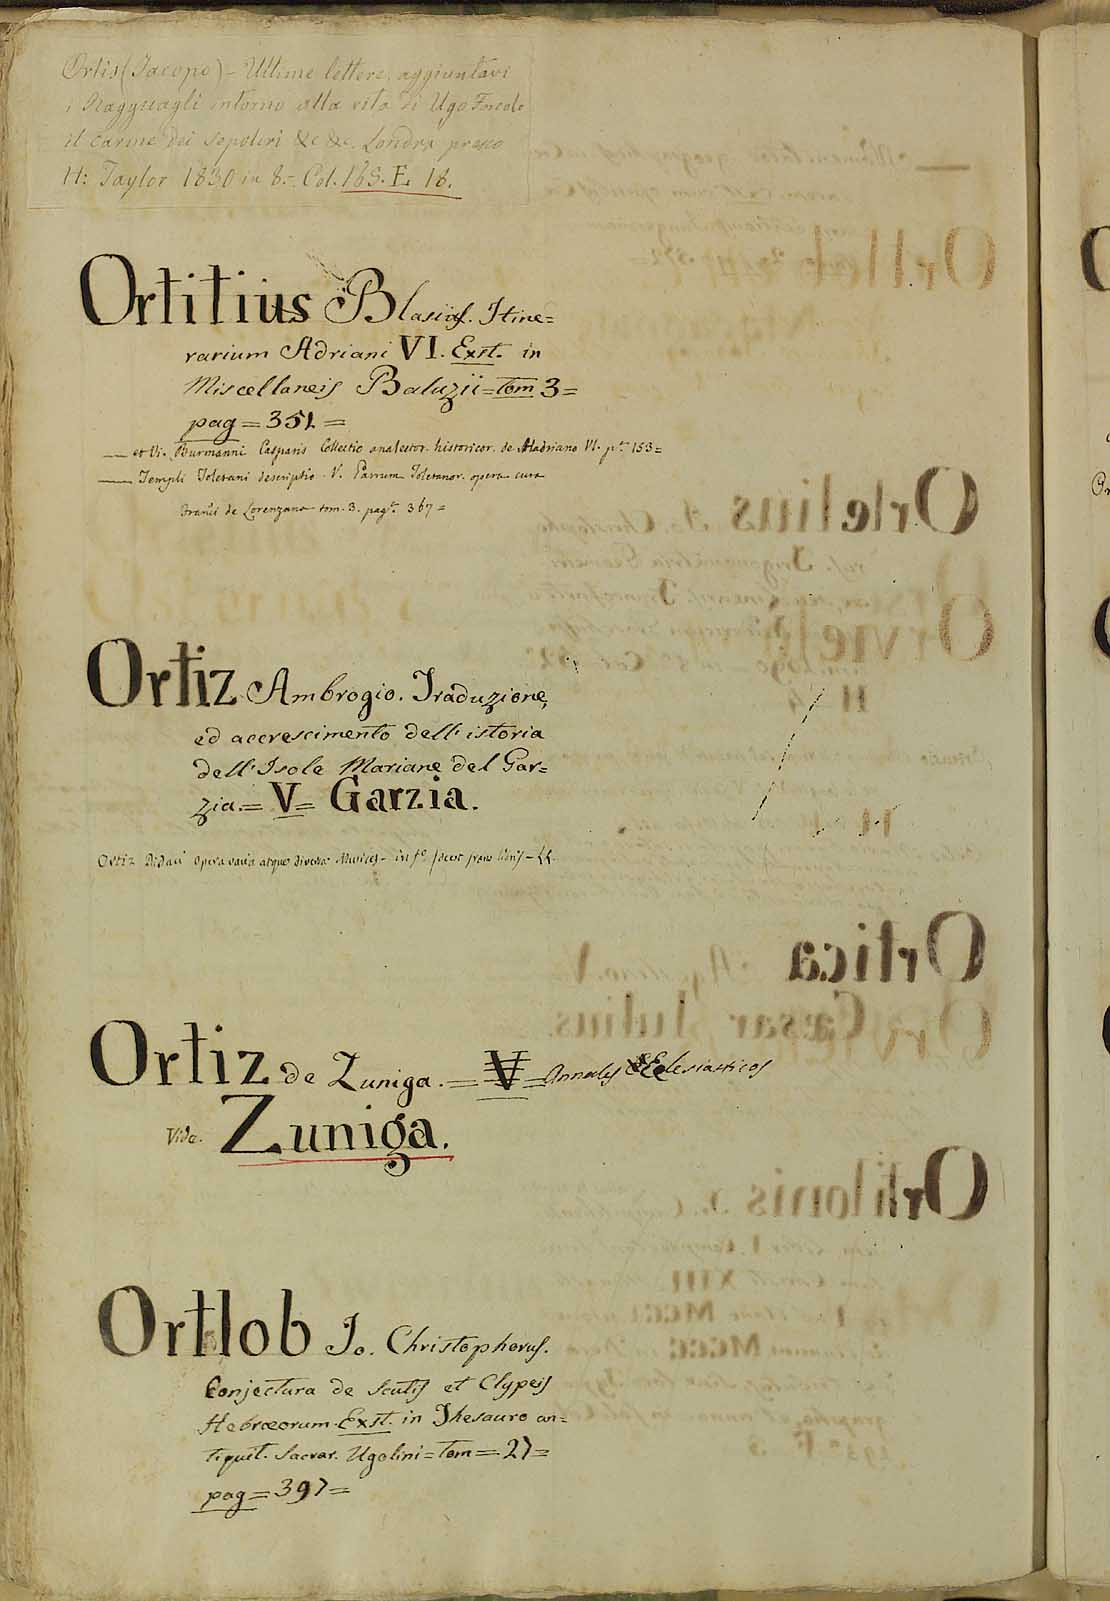 Ortis (Jacopo) - Ultime lettere, aggiuntavi
i Ragguagli intorno alla vita di Ugo Foscolo
il Carme dei Sepolcri &c &c. Londra presso
H: Taylor 1830 in 8.- Col. 168. F. 18.
Ortitius Blasius. Itine=
rarium Adriani VI. Exst. in
Miscellaneis Baluzii = tom 3 =
pag = 351 =
— et Vi. Burmanni Casparis Collectio analector. historicor. de Hadriano VI. p.e 153 =
— Templi Toletani descriptio. V. Patrum Toletanor. opera cura
de Lorenzana tom. 3. pag.e 367 =
Ortiz Ambrogio. Traduzione,
ed accrescimento dell' istoria
dell' Isole Mariane del Gar=
zia. = V = Garzia.
Ortiz Didaci opera varia atque diversa in f.o
Ortiz de Zuniga. = V = Annales Eclesiasticos
Vide. Zuniga.
Ortlob Jo. Christophorus.
Conjectura de Scutis et Clypeis
Hebræorum. Exst. in Thesauro an=
tiquit. Sacrar. Ugolini = tom = 27 =
pag = 397 =